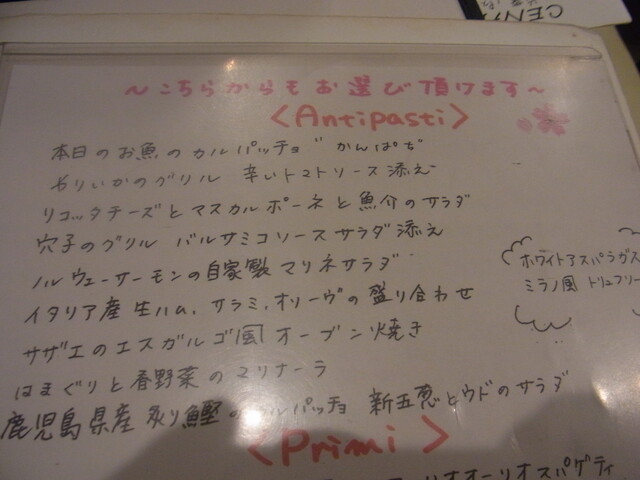 CEN
~こちらからもお選び頂けます~
<Antipasti>
本日のお魚のカルパッチョ゛かんぱち゛
やりいかのグリル 辛いトマトソース添え
リコッタチーズとマスカルポーネと魚介のサラダ
穴子のグリル バルサミコソースサラダ添え
ノルウェーサーモンの自家製マリネサラダ
イタリア産生ハム、サラミ、オリーヴの盛り合わせ
サザエのエスカルゴ風オーブン焼き
はまぐりと香野菜のマリナーラ
鹿児島県産炙り鰹のカルパッチョ 新玉葱とウドのサラダ
ホワイトアスパラガス
ミラノ風 トリュフソー
<Primi>
リオオーリオスパゲティ